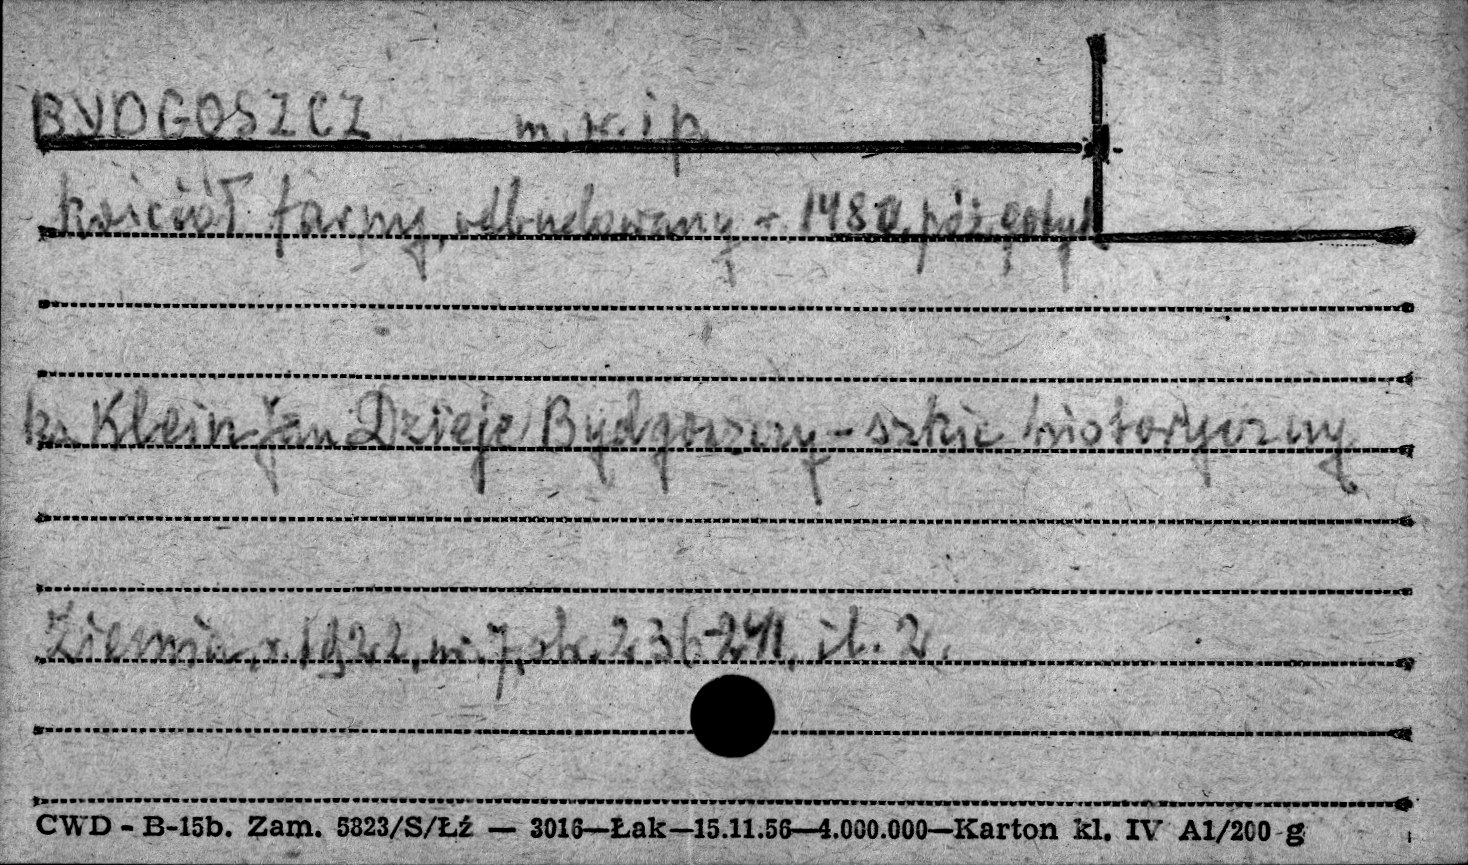 BYDGOSZCZ m. w. i p.
kościół farny, odbudowany r. 1480, póź. gotyk
ks. Klein Jan Dzieje Bydgoszczy - szkic historyczny
Ziemia, r. 1922, nr. 7, str. 236-241, il. 2.
CWD - B-15b. Zam. 5823/S/Łź — 3016—Łak—15.11.56—4.000.000—Karton kl. IV A1/200 g